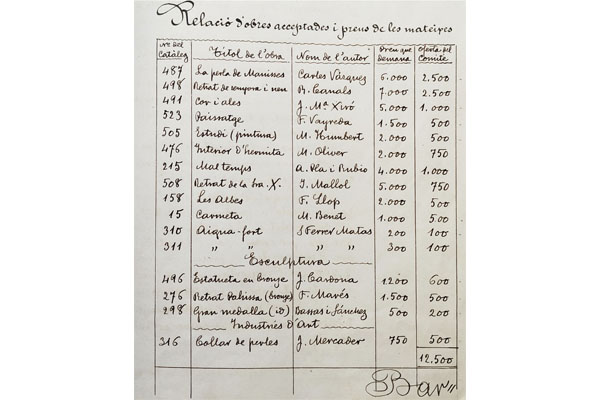 Relació d'obres acceptades i preus de les mateixes
Nr. del Catàleg Títol de l'obra Nom de l'autor Preu que demana oferta del Comite
487 La perla de Manisses Carlos Vàzquez 6.000 2.500
498 Retrat de senyora i nen R. Canals 7.000 2.500
491 Cor i ales J. Mª Xiró 5.000 1.000
523 Paisatge F. Vayreda 1.500 500
505 Estudi (pintura) M. Humbert 2.000 500
476 Interior d'hermita M. Oliver 2.000 750
215 Mal temps A. Pla i Rubio 4.000 1.000
508 Retrat de la Sra. X. I. Mallol 5.000 750
158 Les Albes F. Llop 2.000 500
15 Carmeta M. Benet 1.000 500
310 Aigua-fort S Ferrer Matas 200 100
311 " " " " 300 100
Esculptura
496 Estatueta en bronze J. Cardona 1.200 600
276 Retrat (bronze) F. Marés 1.500 500
298 Gran medalla (id) Bassas i Sánchez 500 200
Industries d'Art
316 Collar de perles J. Mercader 750 500
12.500